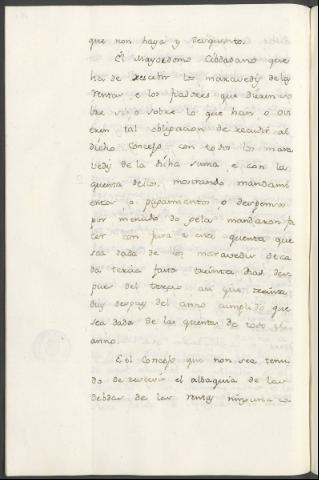 que non haya y desquento.
El Mayordomo Cibdadano que
ha de rescebir los maravedis de las
rentas e los fiadores que dieren so
bre si, o sobre lo que han o ovi
eren tal obligacion de recudir al
dicho Concejo con todos los mara
vedis de la dicha suma e con la
quenta dellos, mostrando mandami
entos o pagamientos o despensa
por menudo do gelas mandaron fa
cer con jura e esta quenta que
sea dada de los maravedis de ca
da tercia fasta treinta dias des
pues del tercio asi que treinta
dias despues del año cumplido que
sea dada de las quentas de todo
año.
E el Concejo que non sea tenu
do de rescebir el albaquia de las
debdas de las rentas ninguna